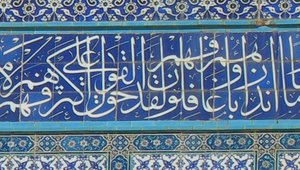 ما انذر اباؤهم فهم غافلون لقد حق القول على اكثرهم فهم